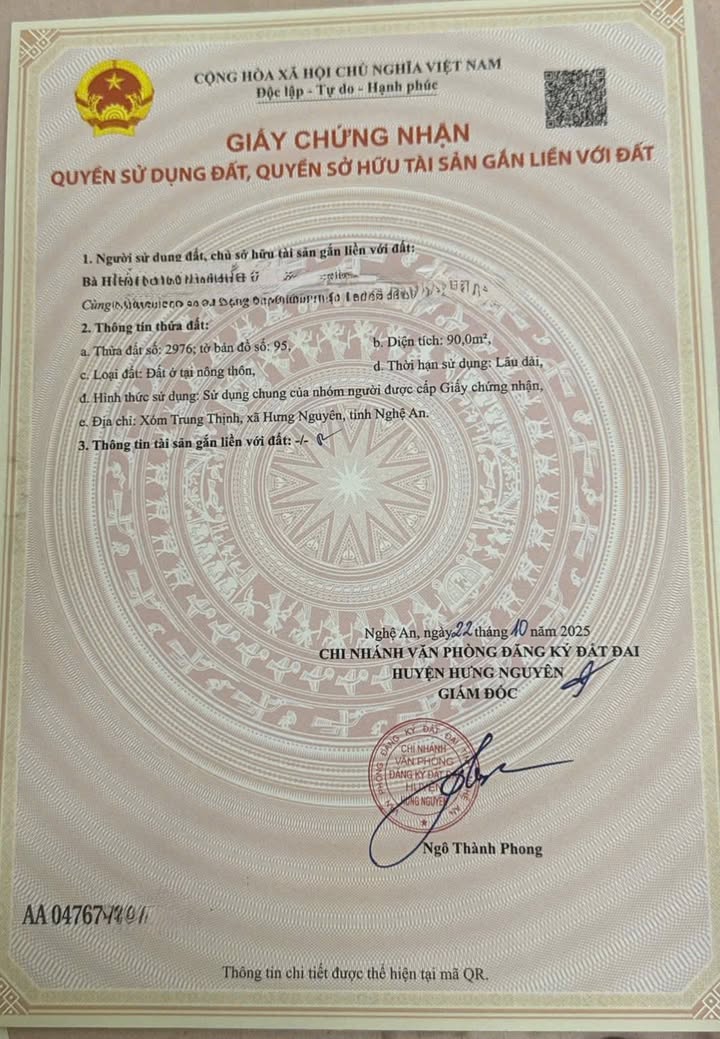 CỘNG HÒA XÃ HỘI CHỦ NGHĨA VIỆT NAM
Độc lập - Tự do - Hạnh phúc
GIẤY CHỨNG NHẬN
QUYỀN SỬ DỤNG ĐẤT, QUYỀN SỞ HỮU TÀI SẢN GẮN LIỀN VỚI ĐẤT
1. Người sử dụng đất, chủ sở hữu tài sản gắn liền với đất:
Bà
2. Thông tin thửa đất:
a. Thửa đất số: 2976; tờ bản đồ số: 95, b. Diện tích: 90,0m²,
c. Loại đất: Đất ở tại nông thôn, d. Thời hạn sử dụng: Lâu dài,
đ. Hình thức sử dụng: Sử dụng chung của nhóm người được cấp Giấy chứng nhận,
e. Địa chỉ: Xóm Trung Thịnh, xã Hưng Nguyên, tỉnh Nghệ An.
3. Thông tin tài sản gắn liền với đất: -/-
Nghệ An, ngày 22 tháng 10 năm 2025
CHI NHÁNH VĂN PHÒNG ĐĂNG KÝ ĐẤT ĐAI
HUYỆN HƯNG NGUYÊN
GIÁM ĐỐC
CHI NHÁNH
VĂN PHÒNG
ĐĂNG KÝ ĐẤT
HUYỆN
HƯNG NGUYÊN
Ngô Thành Phong
AA 04767
Thông tin chi tiết được thể hiện tại mã QR.